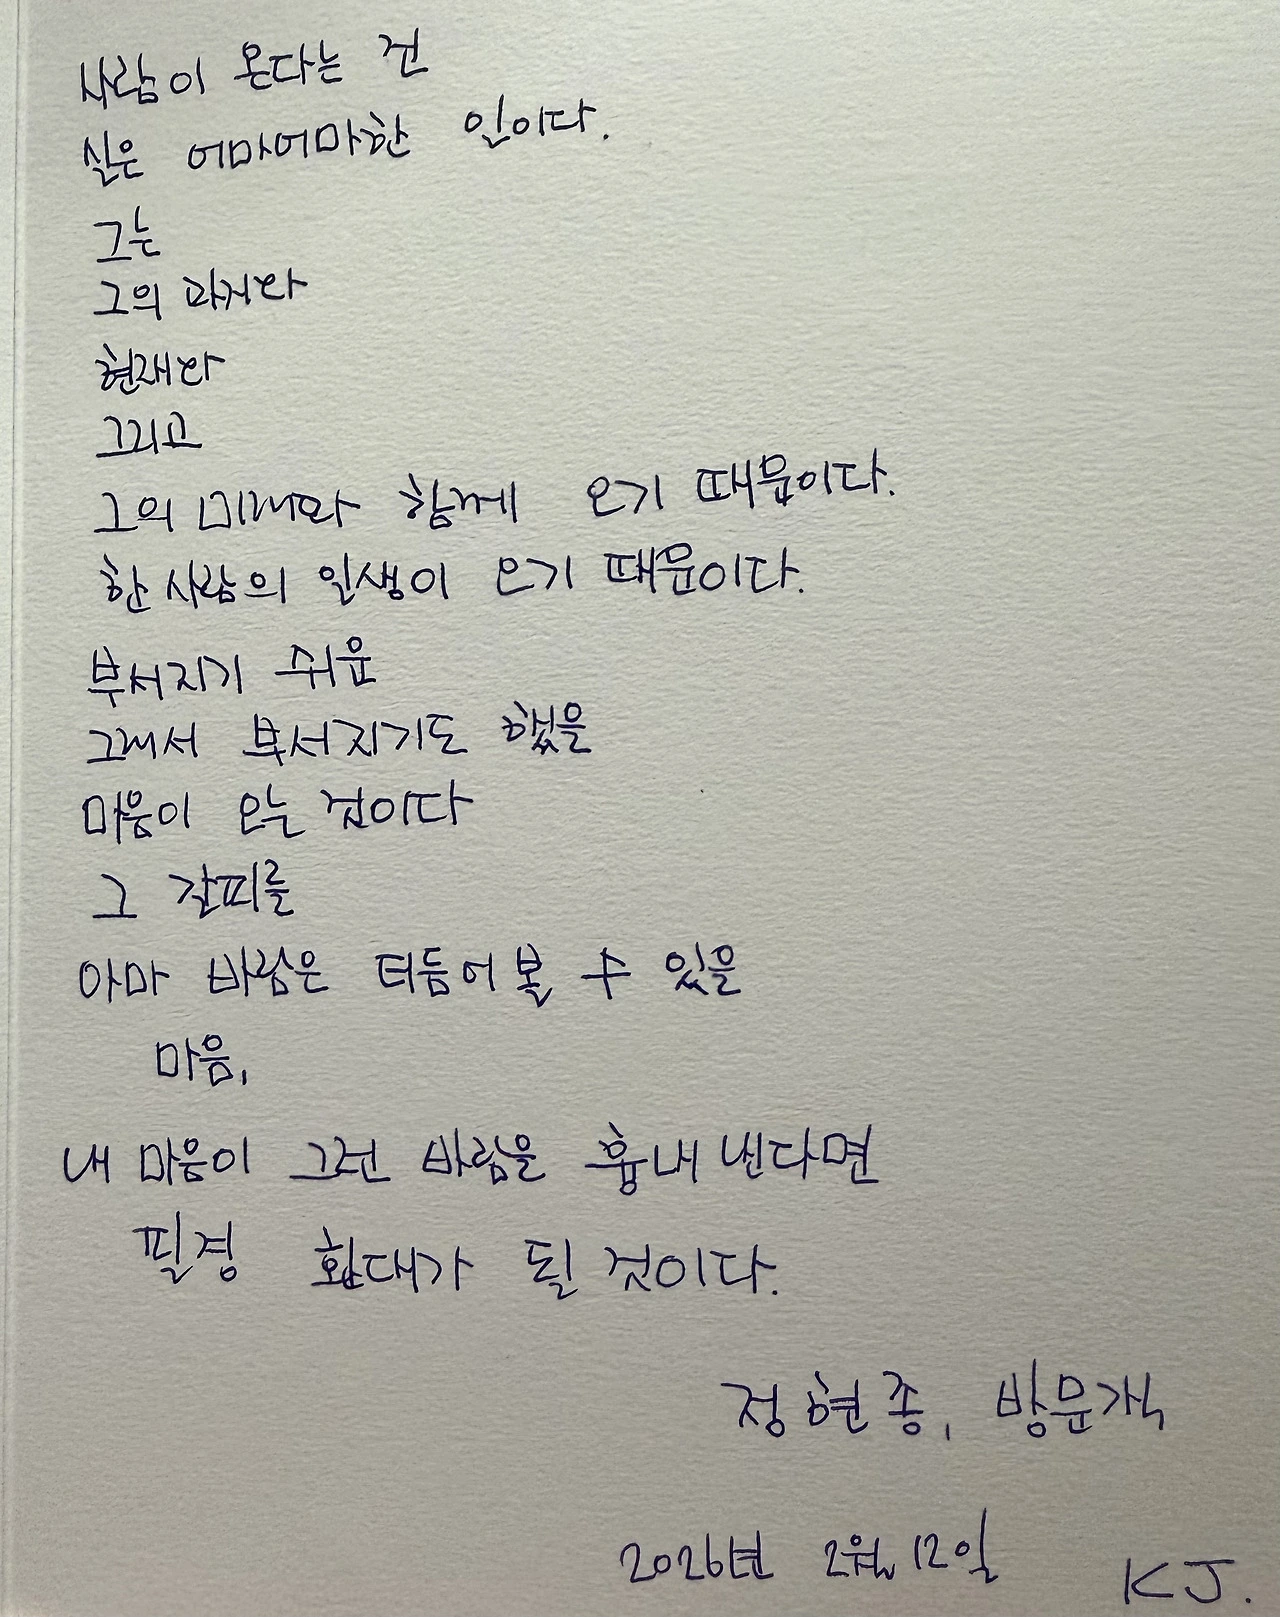 사람이 온다는 건
실은 어마어마한 일이다.
그는
그의 과거와
현재와
그리고
그의 미래와 함께 오기 때문이다.
한 사람의 일생이 오기 때문이다.
부서지기 쉬운
그래서 부서지기도 했을
마음이 오는 것이다
그 갈피를
아마 바람은 더듬어 볼 수 있을
마음,
내 마음이 그런 바람을 흉내 낸다면
필경 환대가 될 것이다.
정현종, 방문객
2026년 2월 12일 KJ.